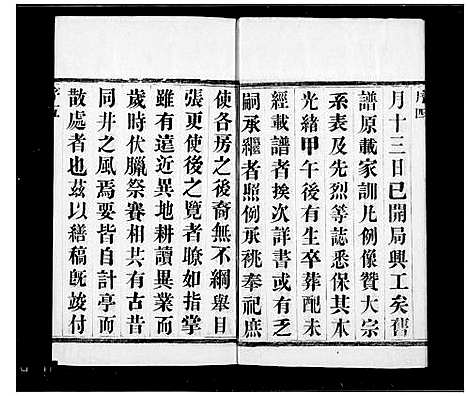 序四
月十三日已開局興工矣舊
譜原載家訓凡例像贊大宗
系表及先烈等誌悉保其本
光緒甲午後有生卒葬配未
經載譜者挨次詳書或有乏
嗣承繼者照例承祧奉祀庶
使各房之後裔無不綱舉目
張更使後之覽者瞭如指掌
雖有遠近異地耕讀異業而
歲時伏臘祭賽相共有古昔
同井之風焉要皆自計亭而
散處者也茲以繕稿旣竣付
序五